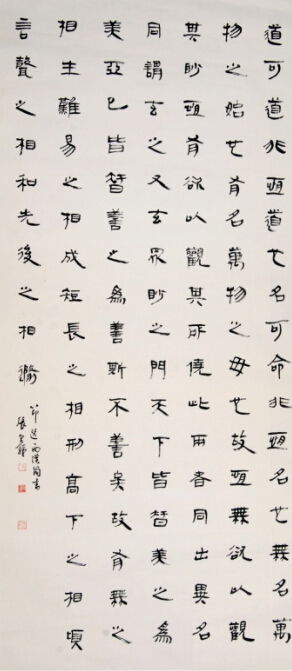 道可道非恆道也名可命非恆名也無名萬
物之始也有名萬物之母也故恆無欲以觀
其眇恆有欲以觀其所僥此兩者同出異名
同謂玄之又玄眾眇之門天下皆智美之為
美亞已皆智善之為善斯不善矣故有無之
相生難易之相成短長之相形高下之相頃
言聲之相和先後之相隨
節選西漢簡書
張